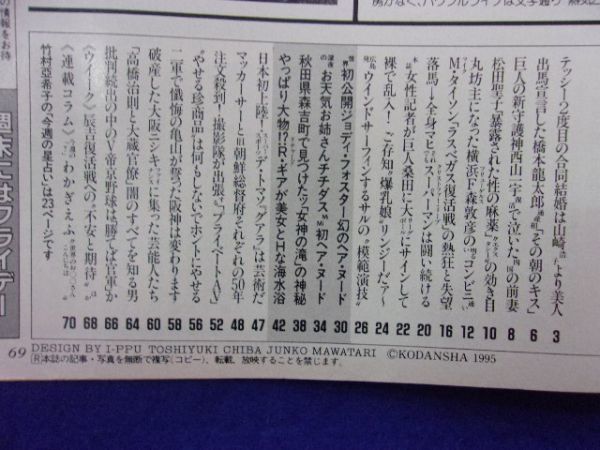 テッシー2度目の合同結婚は山崎浩より美人 3
出馬宣言した橋本龍太郎通産相“その朝のキス” 6
巨人の新守護神西山一宇で泣いた前妻 8
松田聖子“暴露された性の麻薬”の効き目 10
丸坊主になった横浜F森敦彦のコンビニ 12
M・タイソン“ラスベガス復活戦”の熱狂と失望 16
落馬→全身マヒスーパーマンは闘い続ける 20
女性記者が巨人桑田に大ボディにサインして 22
裸で乱入!ご存知“爆乳娘”リンジーだァー 24
ウインドサーフィンするサルの“模範演技” 26
世界初公開ジョディ・フォスター幻のヘア・ヌード 30
お天気お姉さんチチダス初ヘア・ヌード 34
秋田県森吉町で見つけたッ“女神の滝”の神秘 38
やっぱり大物!?R・ギアが美女とHな海水浴 42
日本初上陸デ・トマソ“グアラ”は芸術だ 47
マッカーサーと旧朝鮮総督府それぞれの50年 48
注文殺到!撮影隊が出張“プライベートAV” 52
“やせる珍商品”は何もしないでホントにやせる 56
二軍で懺悔の亀山が誓った阪神は変わります 58
破産した大阪ニシキに集った芸能人たち 60
「高橋治則と大蔵官僚」の闇のすべてを知る男 64
批判続出の中のV帝京野球は勝てば官軍か 66
《ウイーク》辰吉復活戦への“不安と期待” 68
《連載コラム》わかぎえふ 70
竹村亞希子の「今週の星占い」は23ページです
週末にはフライデー
69
DESIGN BY I-PPU TOSHIYUKI CHIBA JUNKO MAWATARI ©KODANSHA 1995
Ⓡ本誌の記事・写真を無断で複写(コピー)、転載、放映することを禁じます。